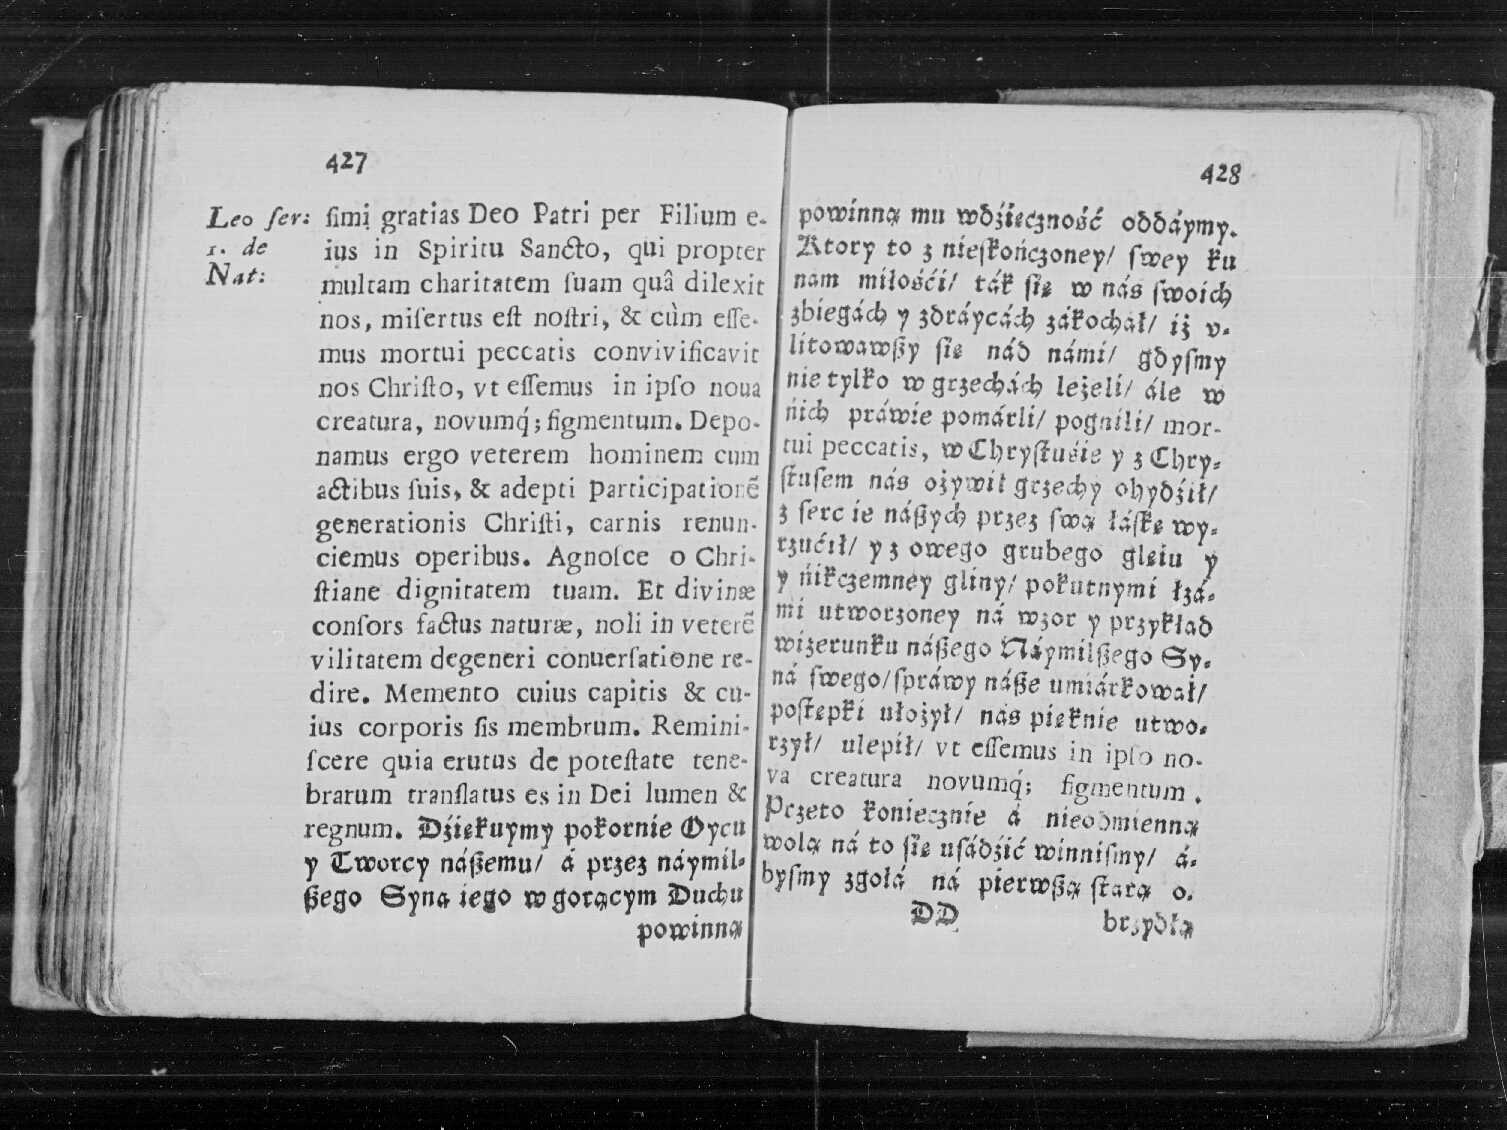 427
Leo ser:
1. de
Nat:
ſimi gratias Deo Patri per Filium e-
ius in Spiritu Sancto, qui propter
multam charitatem ſuam quâ dilexit
nos, miſertus eſt noſtri, & cùm eſſe-
mus mortui peccatis convivificavit
nos Chriſto, vt eſſemus in ipſo noua
creatura, novumq́; figmentum. Depo-
namus ergo veterem hominem cum
actibus ſuis, & adepti participationẽ
generationis Chriſti, carnis renun-
ciemus operibus. Agnoſce o Chri-
ſtiane dignitatem tuam. Et divinæ
conſors factus naturæ, noli in veterẽ
vilitatem degeneri conuerſatione re-
dire. Memento cuius capitis & cu-
ius corporis ſis membrum. Remini-
ſcere quia erutus de poteſtate tene-
brarum tranſlatus es in Dei lumen &
regnum. Dźiękuymy pokornie Oycu
y Tworcy náßemu/ á przez náymil-
ßego Syna iego w gorącym Duchu
powinną
428
powinną mu wdźięczność oddáymy.
Ktory to z nieſkończoney/ ſwey ku
nam miłośći/ ták ſię w nás ſwoich
zbiegách y zdráycách zákochał/ iż v-
litowawßy ſię nád námi/ gdyſmy
nie tylko w grzechách leżeli/ ále w
nich práwie pomárli/ pognili/ mor-
tui peccatis, w Chryſtuśie y z Chry-
ſtuſem nás ożywił grzechy ohydźił/
z ſerc ie náßych przez ſwą łáſkę wy-
rzućił/ y z owego grubego gleiu y
y nikczemney gliny/ pokutnymi łzá-
mi utworzoney ná wzor y przykład
wizerunku náßego Náymilßego Sy-
ná ſwego/ ſpráwy náße umiárkował/
poſtępki ułożył/ nás pięknie utwo-
rzył/ ulepił/ vt eſſemus in ipſo no-
va creatura novumq́; figmentum.
Przeto koniecznie á nieodmienną
wolą ná to ſię uſádźić winniſmy/ á-
byſmy zgołá ná pierwßą ſtarą o-
DD
brzydłą